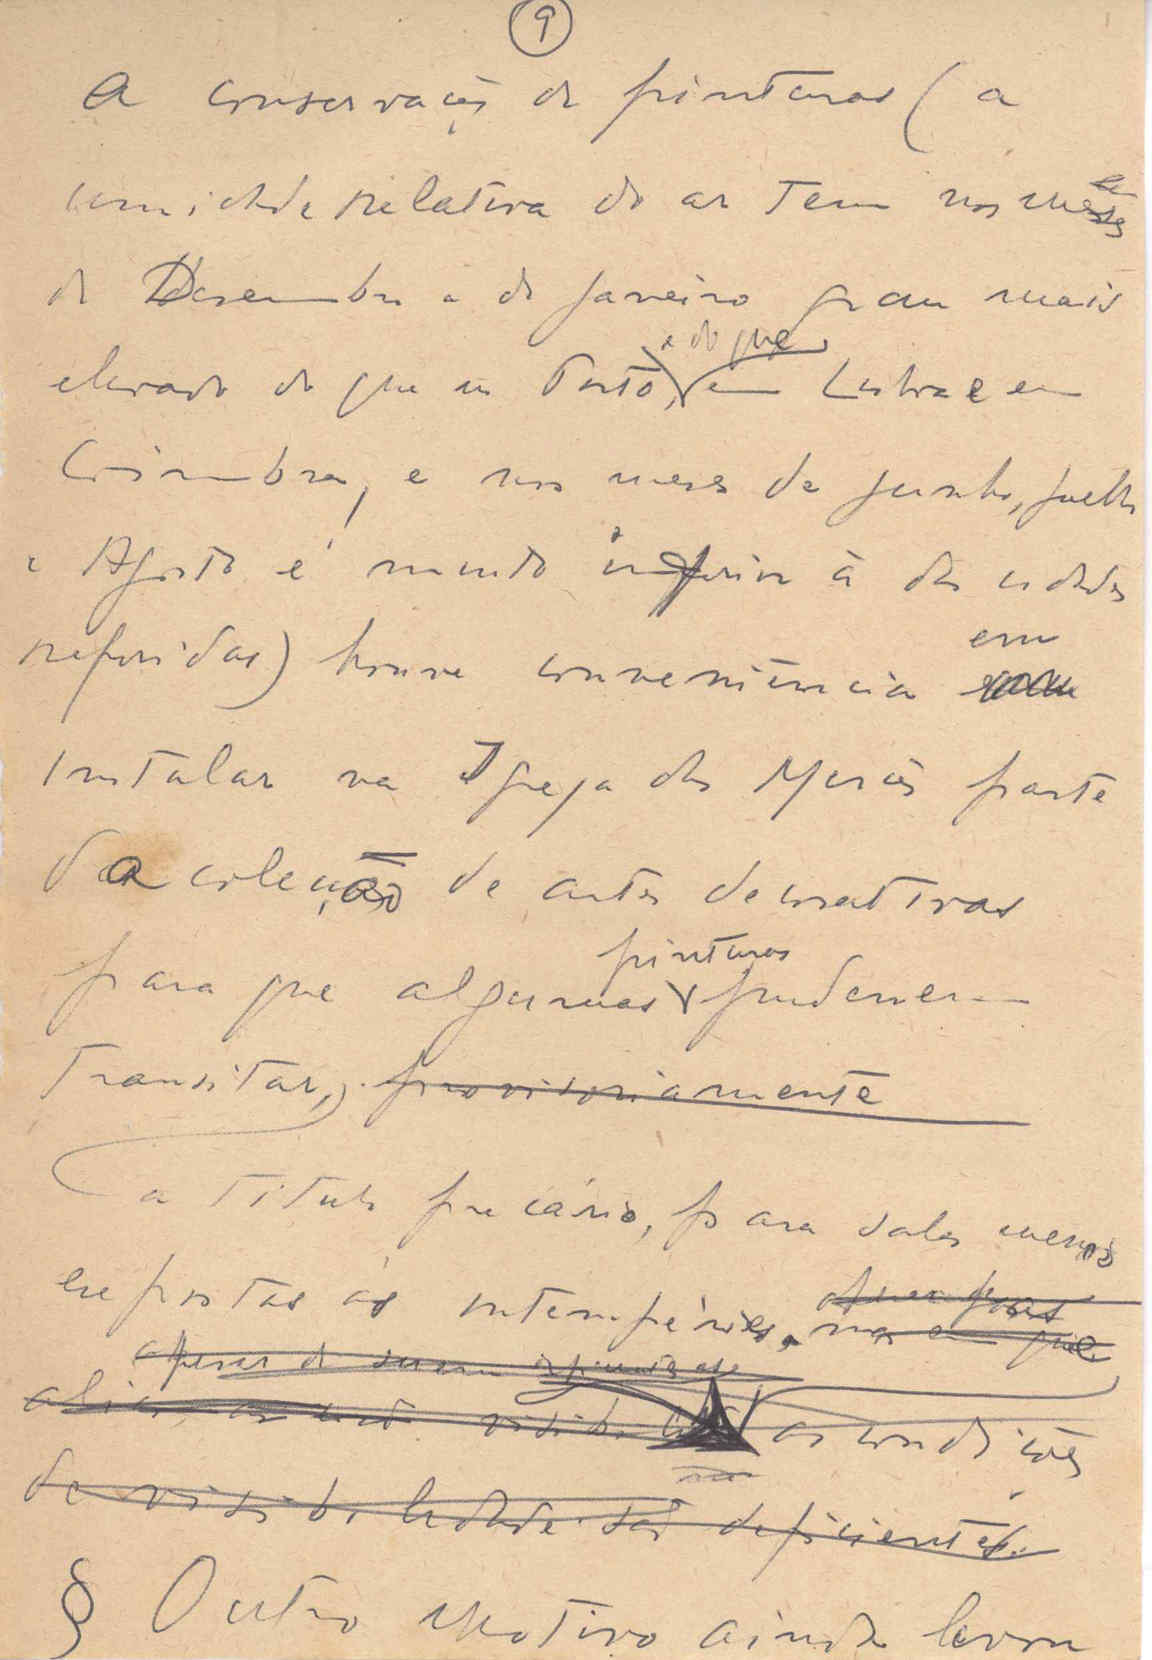 9
a conservação de pinturas (a
umidade relativa do ar tem nos meses
de Dezembro e de Janeiro grau mais
e do que
elevado do que no Porto, em Lisboa e em
Coimbra, e nos meses de Junho, Julho
e Agosto é muito inferior à das cidades
em
referidas) houve conveniência
instalar na Igreja das Mercês parte
da coleção de artes decorativas
pinturas
para que algumas pudessem
transitar, provisoriamente
a título precário, para salas menos
expostas às intempéries, mas em que
apesar de serem
aliás visibi as condições
de visibilidade são deficientes.
§ Outro motivo ainda levou